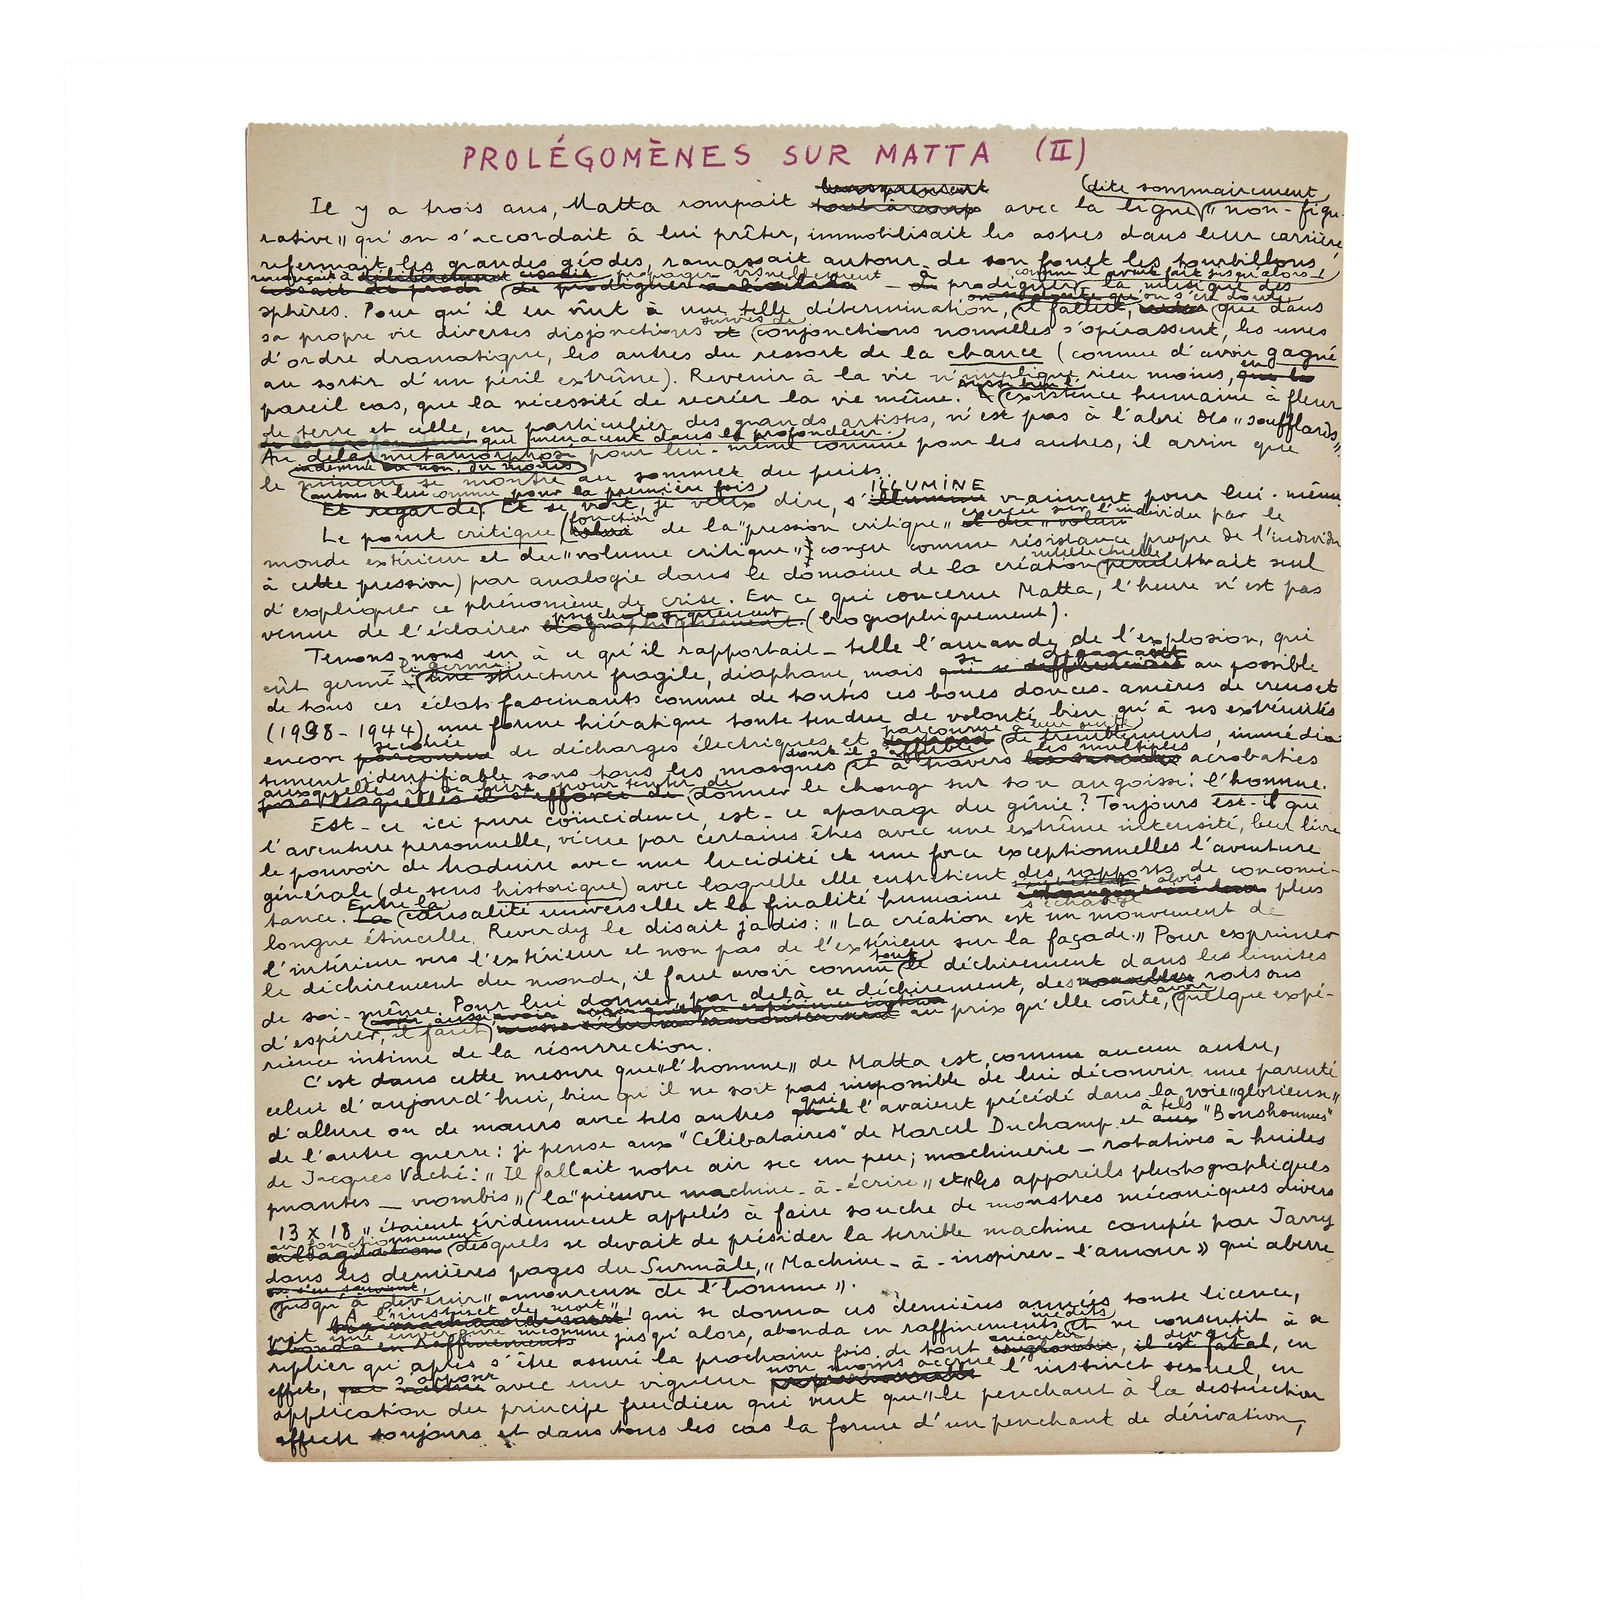 PROLÉGOMÈNES SUR MATTA (II)
(dite sommairement,
Il y a trois ans, Matta rompait tout à coup avec la ligne "non-figu-
rative" qu'on s'accordait à lui prêter, immobilisait les astres dans leur carrière,
refermait les grandes géodes, ramassait autour de son fouet les tourbillons,
renonçait à propager visuellement - à comme il avait fait jusqu'alors -
de prodiguer prodiguer la musique des
on s'est douté,
sphères. Pour qu'il en vînt à une telle détermination, il fallut, que dans
suivies de
sa propre vie diverses disjonctions et conjonctions nouvelles s'opérassent, les unes
d'ordre dramatique, les autres du ressort de la chance (comme d'avoir gagné
au sortir d'un péril extrême). Revenir à la vie n'implique rien moins, en
pareil cas, que la nécessité de recréer la vie même. existence humaine à fleur
de terre et celle, en particulier des grands artistes, n'est pas à l'abri des "soufflards"
qui menacent dans la profondeur.
Au delà, métamorphose pour lui-même comme pour les autres, il arrive que
indemne ou non, du moins
le mineur se montre au sommet du puits.
autour de lui comme pour la première fois ILLUMINE
Et regarde. Et se voit, je veux dire, s'illumine vraiment pour lui-même.
fonction exercée sur l'individu par le
Le point critique de la "pression critique" et du "volum
monde extérieur et du "volume critique" conçu comme résistance propre de l'individu
intellectuelle
à cette pression) par analogie dans le domaine de la création permettrait seul
d'expliquer ce phénomène de crise. En ce qui concerne Matta, l'heure n'est pas
psychologiquement
venue de l'éclairer biographiquement. (biographiquement).
Tenons-nous en à ce qu'il rapportait - telle l'amande de l'explosion, qui
se dégageait
eût germé - une structure fragile, diaphane, mais qui se différenciait au possible
de tous ces éclats fascinants comme de toutes ces boues douces-amères de creuset
(1938-1944), une forme hiératique toute tendue de volonté bien qu'à ses extrémités
secouée parcourue à leur suite
encore parcourue de décharges électriques et de tremblements, immédia-
dont il s'affuble les multiples
tement identifiable sous tous les masques et à travers acrobaties
auxquelles il se livre pour tenter de
par lesquelles il s'efforce de donner le change sur son angoisse: l'homme.
Est-ce ici pure coïncidence, est-ce apanage du génie? Toujours est-il que
l'aventure personnelle, vécue par certains êtres avec une extrême intensité, leur livre
le pouvoir de traduire avec une lucidité et une force exceptionnelles l'aventure
générale (de sens historique) avec laquelle elle entretient des rapports de concomi-
Entre la alors
tance. La causalité universelle et la finalité humaine s'échange plus
longue étincelle. Reverdy le disait jadis: "La création est un mouvement de
l'intérieur vers l'extérieur et non pas de l'extérieur sur la façade." Pour exprimer
tout
le déchirement du monde, il faut avoir connu le déchirement dans les limites
de soi-même. Pour lui donner, par delà ce déchirement, des nouvelles raisons
avoir
d'espérer, il faut, au prix qu'elle coûte, quelque expé-
rience intime de la résurrection.
C'est dans cette mesure que "l'homme" de Matta est, comme aucun autre,
celui d'aujourd'hui, bien qu'il ne soit pas impossible de lui découvrir une parenté
qui
d'allure ou de mœurs avec tels autres l'avaient précédé dans la voie "glorieuse"
à tels
de l'autre guerre: je pense aux "Célibataires" de Marcel Duchamp et aux "Bonshommes"
de Jacques Vaché: "Il fallait notre air sec un peu; machinerie - rotatives à huiles
puantes - vrombis" (la "pieuvre machine-à-écrire" et "les appareils photographiques
13 x 18" étaient évidemment appelés à faire souche de monstres mécaniques divers
au fonctionnement
desquels se devait de présider la terrible machine campée par Jarry
dans les dernières pages du Surmâle, "Machine-à-inspirer-l'amour" qui aberre
on s'en souvient,
jusqu'à devenir "amoureuse de l'homme".
À "l'instinct de mort" qui se donna ces dernières années toute licence,
inédits
prit une envergure inconnue jusqu'alors, abonda en raffinements et ne consentit à se
anéantir devait
replier qu'après s'être assuré la prochaine fois de tout englouter, il est fatal, en
s'opposer non moins accrue
effet, avec une vigueur l'instinct sexuel, en
application du principe freudien qui veut que "le penchant à la destruction
affecte toujours et dans tous les cas la forme d'un penchant de dérivation,